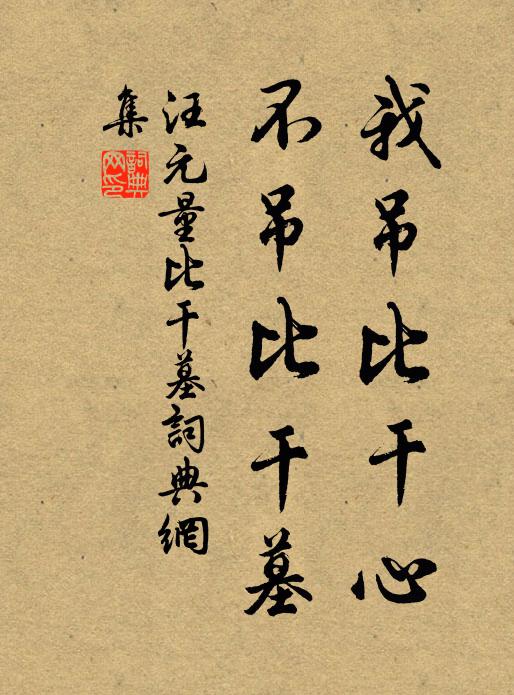 我吊比干心
不吊比干墓
汪元量比干墓詞典網
集
詞典網印